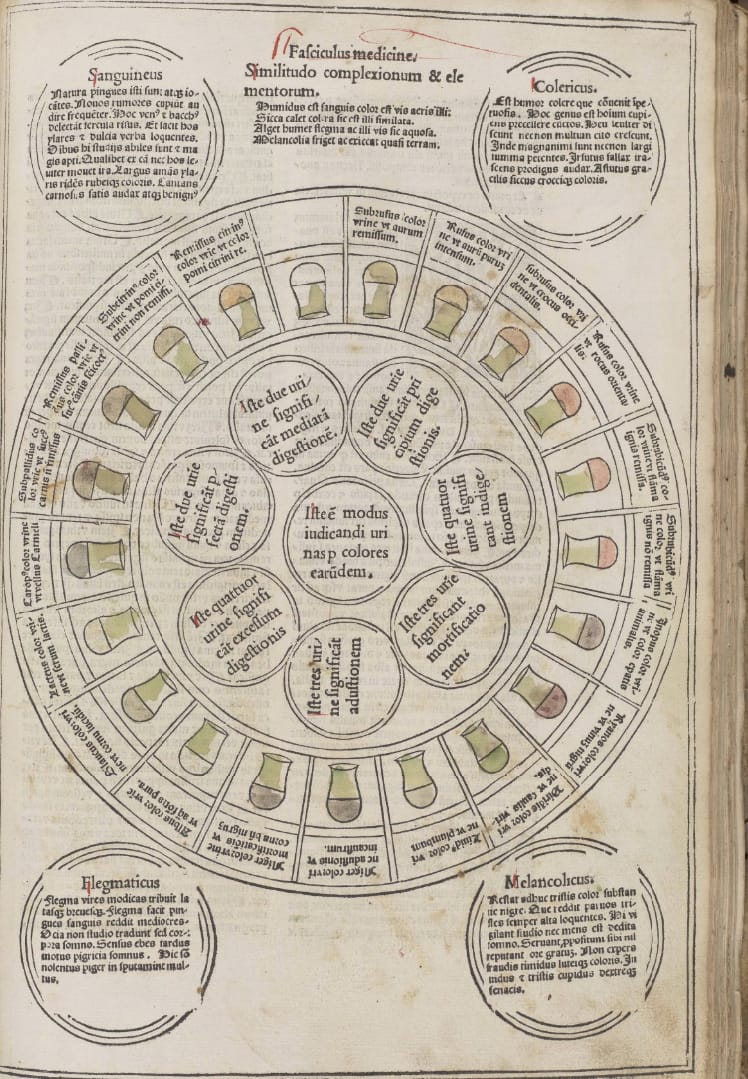 Fasciculus medicine.
Similitudo complexionum & ele
mentorum.
Humidus est sanguis color est vis aeris illi:
Sicca calet colera sic est illi similata.
Alget humet flegma ac illi vis sic aquosa.
Melancolia friget ac exiccat quasi terram.
Sanguineus
Natura pingues isti sunt atqꝫ io-
cātes. Rumores cupiūt au
dire frequēter. Hoc venꝰ ⁊ bacchꝰ
delectāt fercula risus. Et facit hos
ylares ⁊ dulcia verba loquentes.
Oibus hi studijs abiles sunt ⁊ ma
gis apti. Qualibet ex cā nec hos le-
uiter mouet ira. Largus amās yla-
ris ridēs rubeiqꝫ coloris. Cantans
carnosus satis audax atqꝫ benignꝰ
Colericus.
Est humor colere qui cōuenit īpe-
tuosis. Hoc genus est hoium cupi-
ens precellere cūctos. Heu leuiter di
scunt nec non multum cito crescunt.
Inde magnanimi sunt necnon largi
summa petentes. Irsutus fallax ira-
scens prodigus audax. Astutus gra-
cilis siccus croceiqꝫ coloris.
Subrufus color
vrine vt aurum
remissum.
Rufus color vri
ne vt aurū purū
intensum.
Subrufus color vri
ne vt crocus occi
dentalis.
Rufus color vrine
vt crocus orienta
lis:
Subrubicūdꝰ co-
lor vrine vt flāma
ignis remissa.
Subrubicūdꝰ vri
ne color vt flāma
ignis nō remissa
Inopos color vri-
ne vt color epatis
animalis.
Kyanos color vri
ne vt vinū nigrū
Viridis color vri
ne vt caulis viri-
dis.
Liuidꝰ color vri
ne vt plumbum
Niger color vri
ne adustionis vt
incaustrum.
Niger color vrine
mortificatiōis vt
cornu bn̄ nigrū
Albus color vrie
vt aq̄ fōtis pura.
Glaucus color vri
ne vt cornu lucidū.
Lacteus color vri-
ne vt serum lactis.
Carapꝰ color vrine
vt vellus Cameli
Subpallidus co
lor vrie vt succꝰ
carnis nō remissus
Remissus palli-
dus color vrie vt
succꝰ carnis semicoctꝰ
Subcitrinꝰ color
vrine vt pomi ci-
trini non remissi.
Remissus citrinꝰ
color vrie vt color
pomi citrini re.
Iste due uri/
ne signifi/
cāt mediatā
digestionē.
Iste due urīe
significāt pri
cipium dige
stionis.
Iste quatuor
urine signifi
cant indige
stionem
Iste tres urīe
significant
mortificatio
nem.
Iste tres uri/
ne significāt
adustionem
Iste quatuor
urine signifi
cāt excessum
digestionis
Iste due urīe
significāt p-
fectā digesti
onem.
Iste ē modus
iudicandi uri
nas p colores
earūdem.
Flegmaticus
Flegma vires modicas tribuit la
tasqꝫ breuesqꝫ. Flegma facit pin-
gues sanguis reddit mediocres.
Ocia non studio tradunt sed cor-
pora somno. Sensus ebes tardus
motus pigricia somnus. Hic sō
nolentus piger in sputamine mul-
tus.
Melancolicus.
Restat adhuc tristis color substan
tie nigre. Que reddit prauos tri-
stes semper alta loquentes. Hi vi
gilant studio nec mens est dedita
somno. Seruant ppositum sibi nil
reputant ore gratum. Non expers
fraudis timidus luteiqꝫ coloris. In
uidus ⁊ tristis cupidus dextreqꝫ
tenacis.